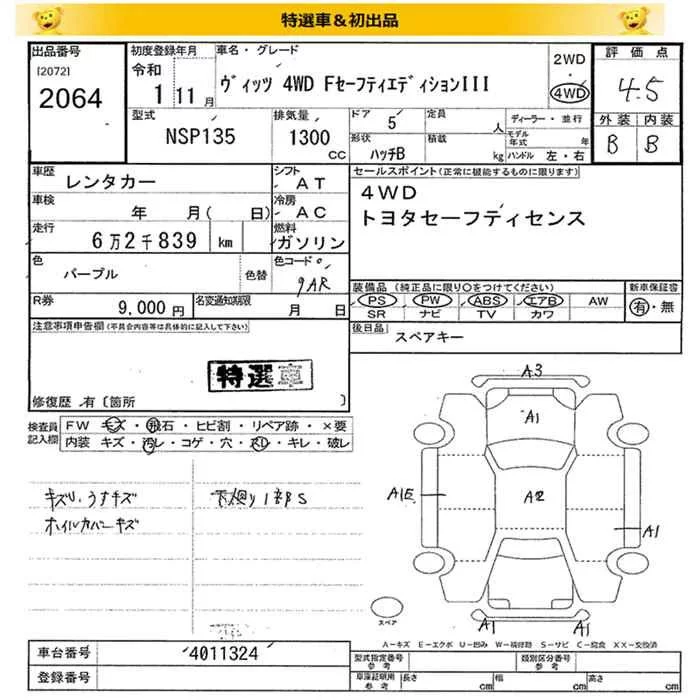 特選車＆初出品
出品番号
[2072]
2064
初度登録年月
令和
1 11月
車名・グレード
ヴィッツ 4WD FセーフティエディションIII
2WD
・
4WD
評価点
4.5
外装 内装
B B
型式
NSP135
排気量
1300
CC
ドア
5
形状
ハッチB
定員
人
積載
kg
ディーラー・並行
モデル
年式
年
ハンドル 左・右
車歴
レンタカー
シフト
AT
車検
年 月( 日)
冷房
AC
走行
6万2千839 km
燃料
ガソリン
色
パープル
色替
色コード
9AR
R券
9,000円
名変通知期限
月 日
セールスポイント(正常に機能するものに限ります)
4WD
トヨタセーフティセンス
装備品 (純正品に限り○をつけてください)
PS PW ABS エアB AW
SR ナビ TV カワ
新車保証書
有・無
後日品
スペアキー
注意事項申告欄(不具合内容等は具体的に記入して下さい)
特選
修復歴 有 〔箇所 〕
検査員
記入欄
FW キズ・飛石・ヒビ割・リペア跡・×要
内装 キズ・汚レ・コゲ・穴・スレ・キレ・破レ
キズU、うすキズ
ホイルカバーキズ
下廻り1部PS
A3
A1
A1E
A2
A1
A1
A1
スペア
A-キズ E-エクボ U-凹み W-補修跡 S-サビ C-腐食 XX-交換済
車台番号
4011324
登録番号
型式指定番号
参考
類別区分番号
参考
車庫証明用
参考
長さ
cm
幅
cm
高さ
cm